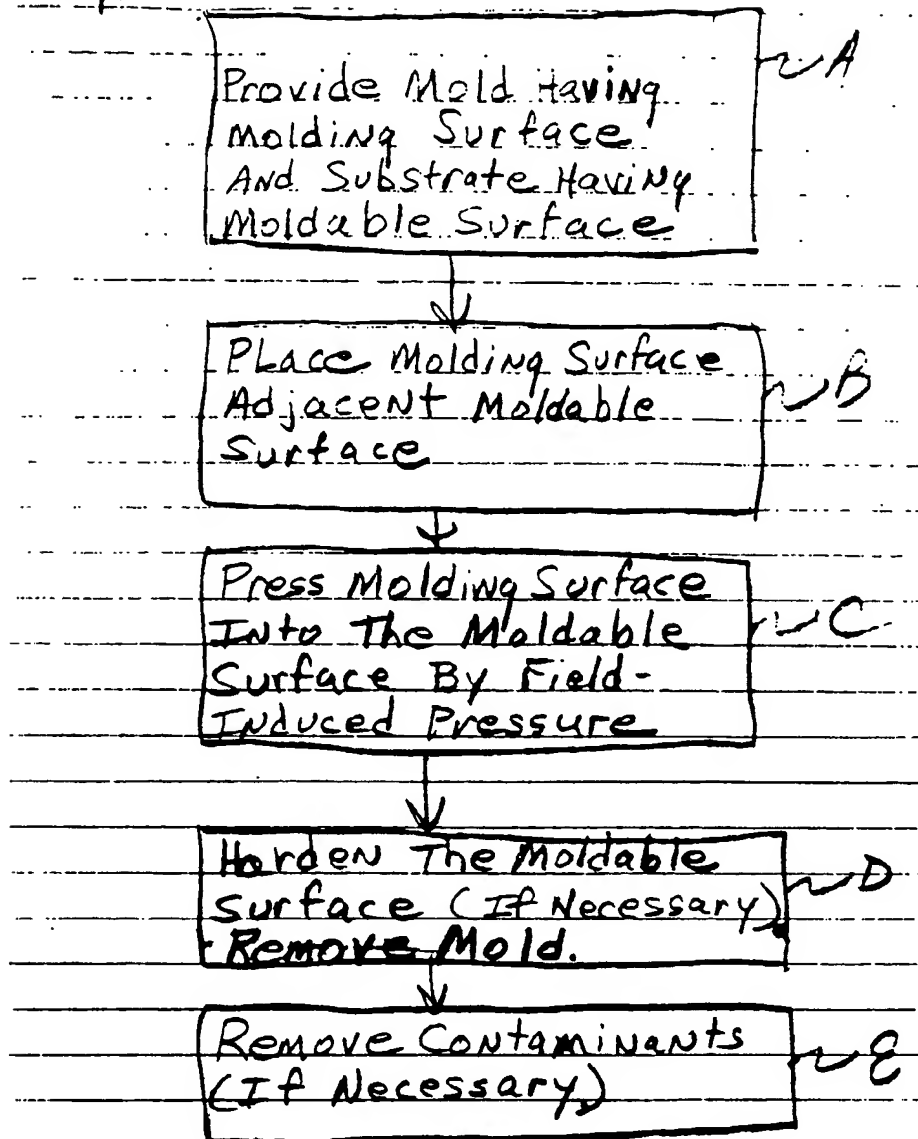 A
Provide Mold Having
Molding Surface
And Substrate Having
Moldable Surface
B
Place Molding Surface
Adjacent Moldable
Surface
C
Press Molding Surface
Into The Moldable
Surface By Field-
Induced Pressure
D
Harden The Moldable
Surface (If Necessary),
Remove Mold.
E
Remove Contaminants
(If Necessary)